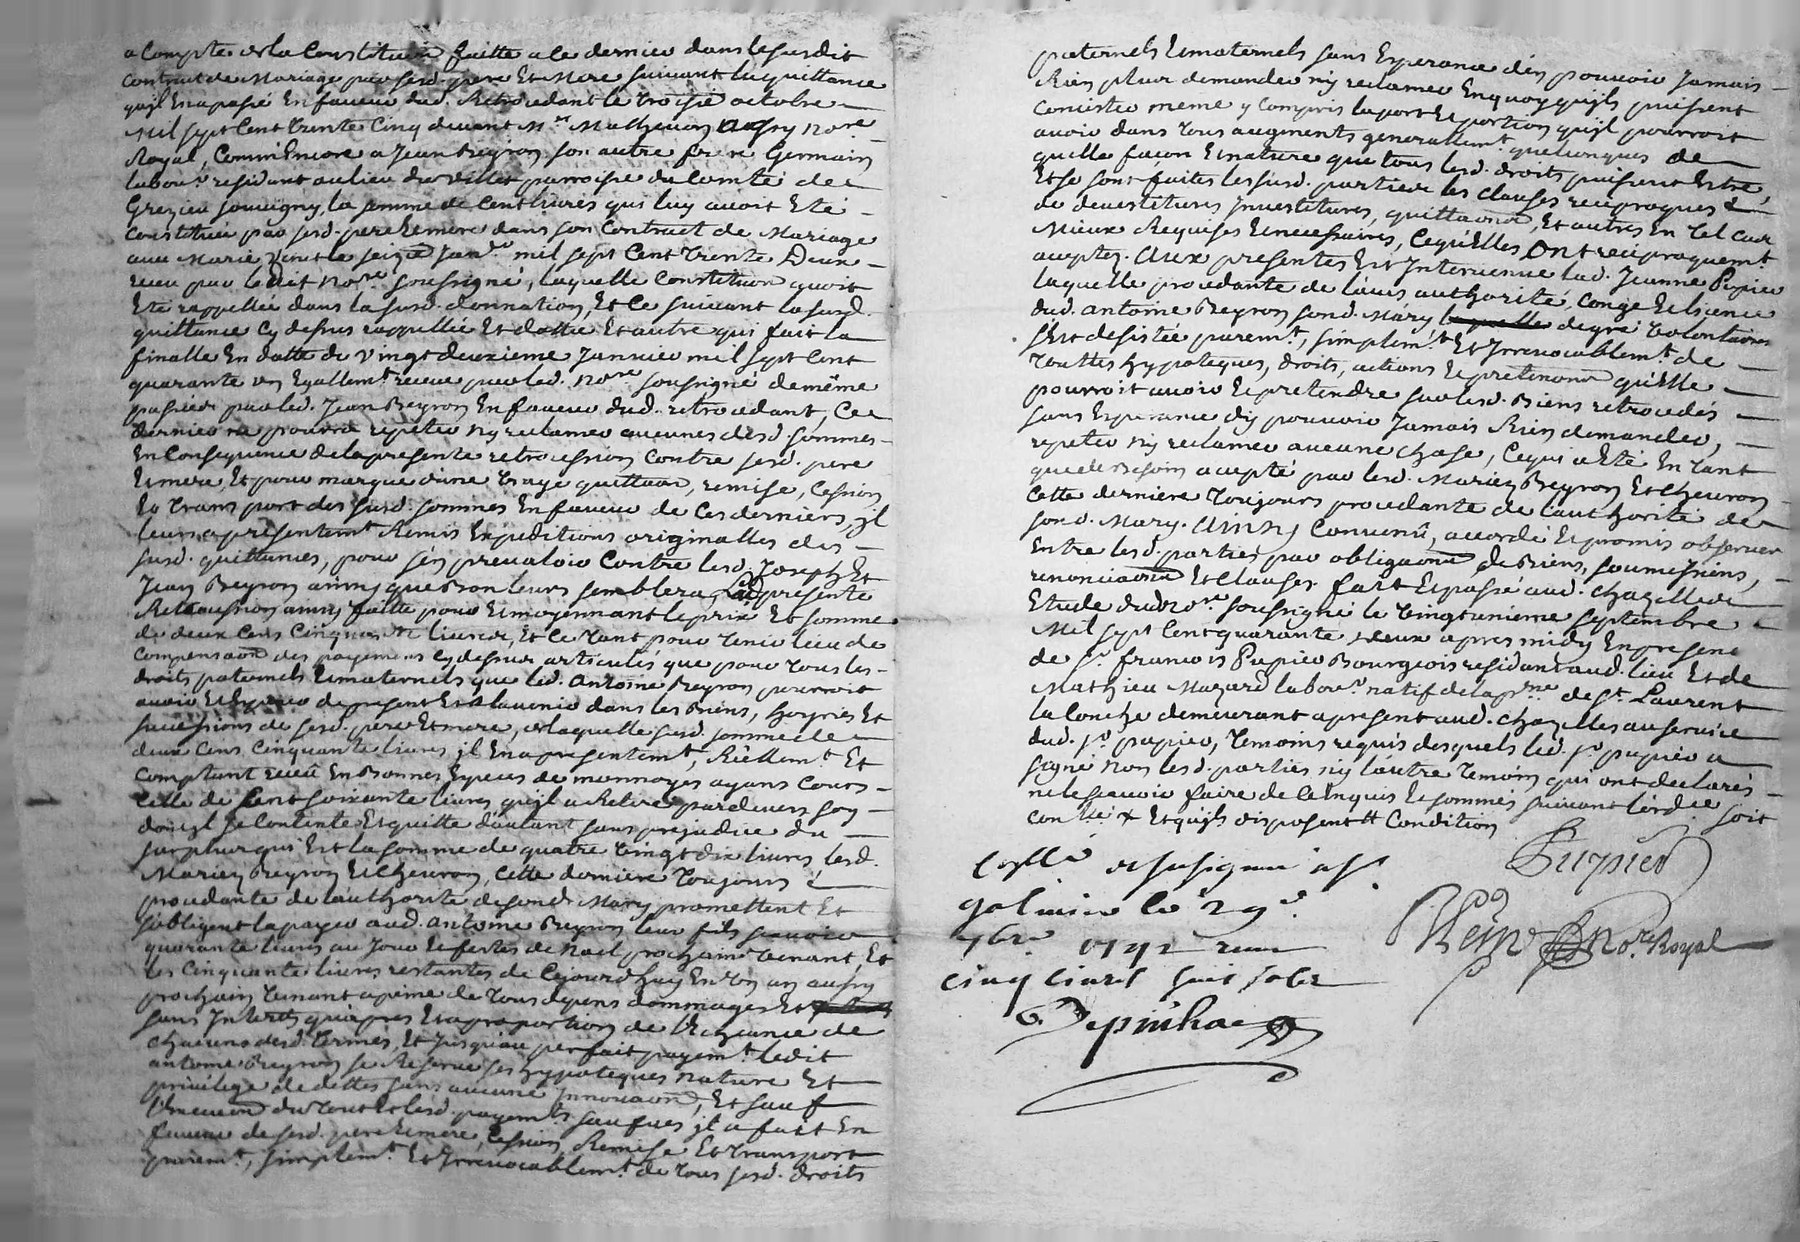 a compte de la Constitution faitte a ce dernier dans le susdit
contract de Mariage par sesd. pere Et Mere suivant la quittance
qu'jl En a passé En faveur dud. Retrocedant le troisie octobre
Mil sept Cent trente Cinq devant Me Mathevon aussy nore
Royal, Comm'Encore a Jean Breyron son autre frere Germain
labour residant au lieu du villet parroisse du Comté de
Grezieu souvigny, la somme de Cent livres qui luy avoit Eté
constituée par sesd. pere Et mere dans son Contract de Mariage
avec Marie le seize Janer mil sept Cent trente Deux
receu par le dit Nore soussigné, laquelle Constitution avoit
Eté rappellée dans la susd. donnation, Et Ce suivant la susd.
quittance Cy dessus rappellée Et dattée Et autre qui fait la
finalle En datte du vingt deuxieme Janvier mil sept Cent
quarante un Egallemt receue par led. Nore soussigné de même
passée par led. Jean Breyron En faveur dud. retrocedant, Ce
dernier ne pourra repeter ny reclamer aucunes desd. sommes
En Consequence de la presente retrocession Contre sesd. pere
Et mere, Et pour marque d'une vraye quittance, remise, Cession
Et transport des susd. sommes En faveur de Ces derniers, jl
leurs a presentemt Remis Expeditions originalles des
susd. quittances, pour s'en prevaloir Contre lesd. Joseph Et
Jean Breyron ainsy que Bon leurs semblera, La presente
Retrocession ainsy faitte pour Et moyennant le prix Et somme
de deux Cens Cinquante livres, Et Ce tant pour tenir lieu de
compensaon des payemens Cy dessus articulés que pour tous les
droits paternels Et maternels que led. Antoine Breyron pourroit
avoir Et Esperer de present Et a l'avenir dans les Biens, hoyries Et
successions de sesd. pere Et mere, de laquelle susd. somme de
deux Cens Cinquante livres jl En a presentemt, Réellemt Et
comptant receu En Bonnes Especes de monnoyes ayans Cours
Celle de Cent soixante livres qu'jl a Retiré pardevers soy
dont jl se Contente Et quitte d'autant sans prejudice du
surplus qui Est la somme de quatre vingt dix livres lesd.
Mariés Breyron Et Chevron, Cette derniere toujours
procedante de l'authorité de sond. Mary promettent Et
s'obligent la payer aud. Antoine Breyron leur fils scavoir
quarante livres au Jour Et festes de Noel prochain venant, Et
les Cinquante livres restantes de Cejourd'huy En un an aussy
prochain venant a peine de tous depens dommages Et
sans Interets qu'apres Et a proportion de l'Echeance de
chacuns desd. termes, Et Jusqu'au perfait payemt ledit
Antoine Breyron se Reserve ses hypoteques nature Et
privilege de dettes sans aucune Innovaon, Et sauf
du tout Et lesd. payemts saufues jl a fait En
faveur de sesd. pere Et mere, Cession, Remise Et transport
puremt, simplemt Et Irrevocablemt de tous sesd. droits
paternels Et maternels sans Esperance d'en pouvoir Jamais
Rien plus demander n'y reclamer En quoy qu'jls puissent
Concister meme y Compris la part Et portion qu'jl pourroit
avoir dans tous augments generallemt quelconques de
quelle façon Et nature que tous lesd. droits puissent Estre,
Et se sont faites les susd. parties les clauses reciproques
de devestitures Investitures, quittances, Et autres En tel Cas
Mieux Requises Et necessaires, Ce qu'Elles Ont reciproquemt
acceptez. Aux presentes Est Intervenue lad. Jeanne Pupier
laquelle procedante de l'avis authorité, Conge Et licence
dud. Antoine Breyron sond. Mary de gré volontaires
s'Est desistée puremt, simplemt Et Irrevocablemt de
touttes hypoteques, droits, actions Et pretenons qu'Elle
pourroit avoir Et pretendre sur lesd. Biens retrocedés
sans Esperance d'y pouvoir Jamais Rien demander,
repeter ny reclamer aucune chose, Ce qui a Eté En tant
que de Besoin accepté par lesd. Mariés Breyron Et Chevron
Cette derniere toujours procedante de l'authorité de
sond. Mary. Ainsy Convenu, accordé Et promis observer
Entre lesd. parties par obligaons de Biens, soumissions,
renonciaons Et Clauses. fait Et passé aud. Chazelles
Etude dud. Nore soussigné le vingt unieme septembre
Mil sept Cent quarante deux apres midy En presence
de Sr francois Pupier Bourgeois residant aud. lieu Et de
Mathieu Mazard labour natif de la psse de St Laurent
la Conche demeurant a present aud. Chazelles au service
dud. Sr pupier, temoins requis desquels led. Sr pupier a
signé Non lesd. parties n'y l'autre temoin qui ont declarés
ne le scavoir faire de Ce Enquis Et sommés suivant l'ord.ce soit
con.lé + Et qu'jls disposent # Condition
Pupier
galmier le 29e
7bre 1742 receu
cinq livres huit sols
Depinhac
Rein Nore Royal